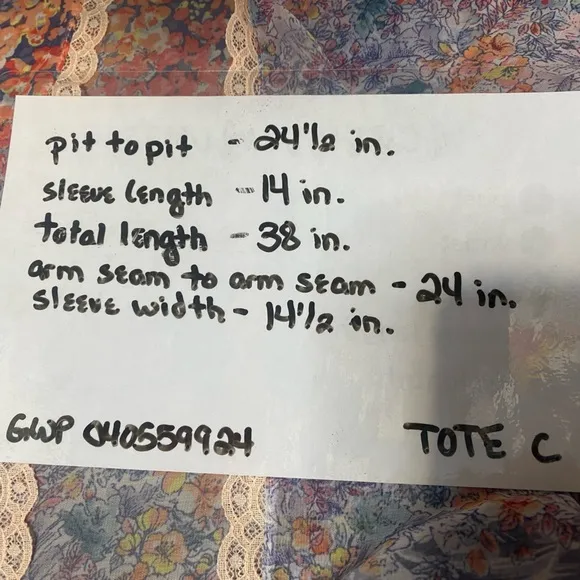 pit to pit - 24 1/2 in.
sleeve length - 14 in.
total length - 38 in.
arm seam to arm seam - 24 in.
sleeve width - 14 1/2 in.
GWP 040559924 TOTE C